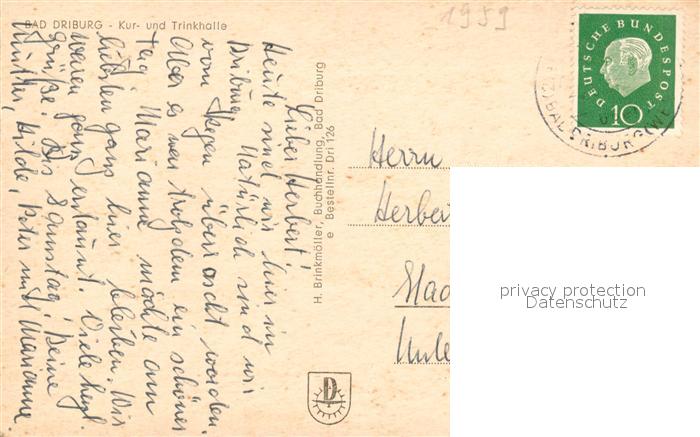 BAD DRIBURG - Kur- und Trinkhalle
1959
Lieber Herbert!
Heute sind wir hier in
Driburg. Natürlich sind wir
vom Regen überrascht worden.
Aber es war trotzdem ein schöner
Tag. Marianne möchte am
liebsten ganz hier bleiben. Wir
waren ganz erstaunt. Viele herzl.
Grüße! Bis Samstag! Deine
Hilde, Peter und Marianne
H. Brinkmöller, Buchhandlung, Bad Driburg
e Bestellnr. Dri 126
DEUTSCHE BUNDESPOST
10
BAD DRIBURG (WE
Herrn
Herber
Stad
Unte
D
privacy protection
Datenschutz